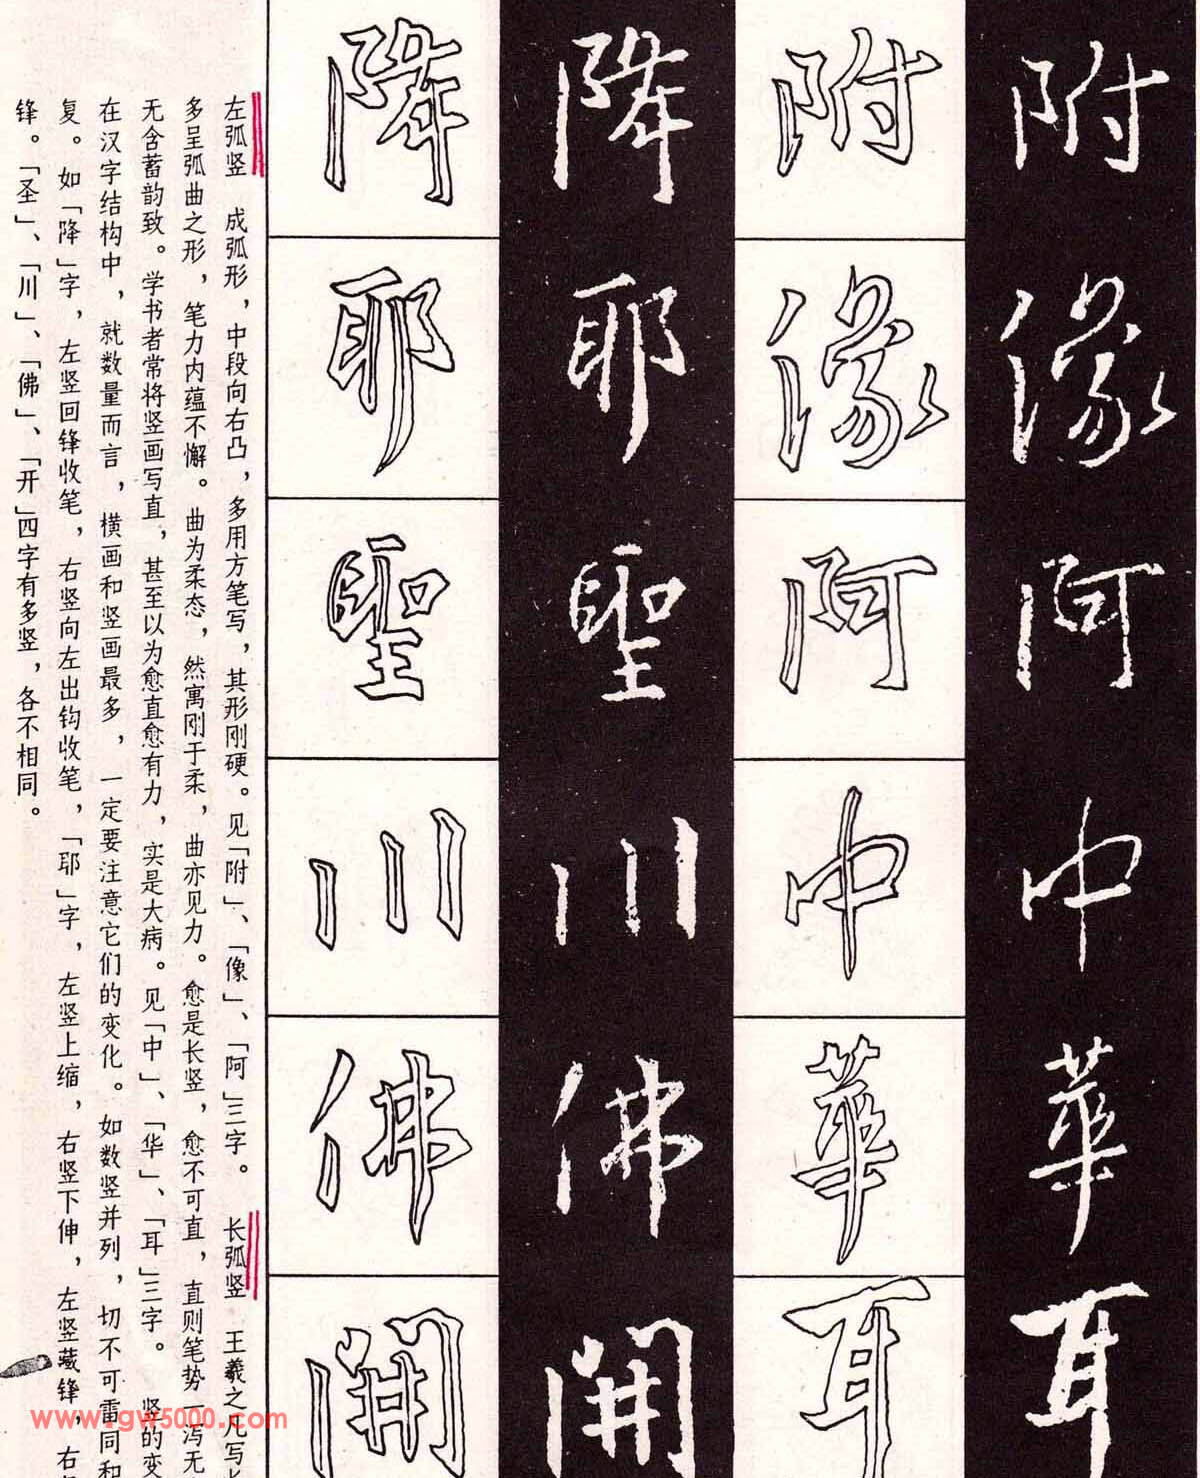 附像阿中華耳
附像阿中華耳
降耶聖川佛開
降耶聖川佛開
左弧竖　成弧形，中段向右凸，多用方笔写，其形刚硬。见「附」、「像」、「阿」三字。　长弧竖　王羲之凡写长
多呈弧曲之形，笔力内蕴不懈。曲为柔态，然寓刚于柔，曲亦见力。愈是长竖，愈不可直，直则笔势一泻无
无含蓄韵致。学书者常将竖画写直，甚至以为愈直愈有力，实是大病。见「中」、「华」、「耳」三字。　竖的变
在汉字结构中，就数量而言，横画和竖画最多，一定要注意它们的变化。如数竖并列，切不可雷同和
复。如「降」字，左竖回锋收笔，右竖向左出钩收笔，「耶」字，左竖上缩，右竖下伸，左竖藏锋，右
锋。「圣」、「川」、「佛」、「开」四字有多竖，各不相同。
www.gw5000.com